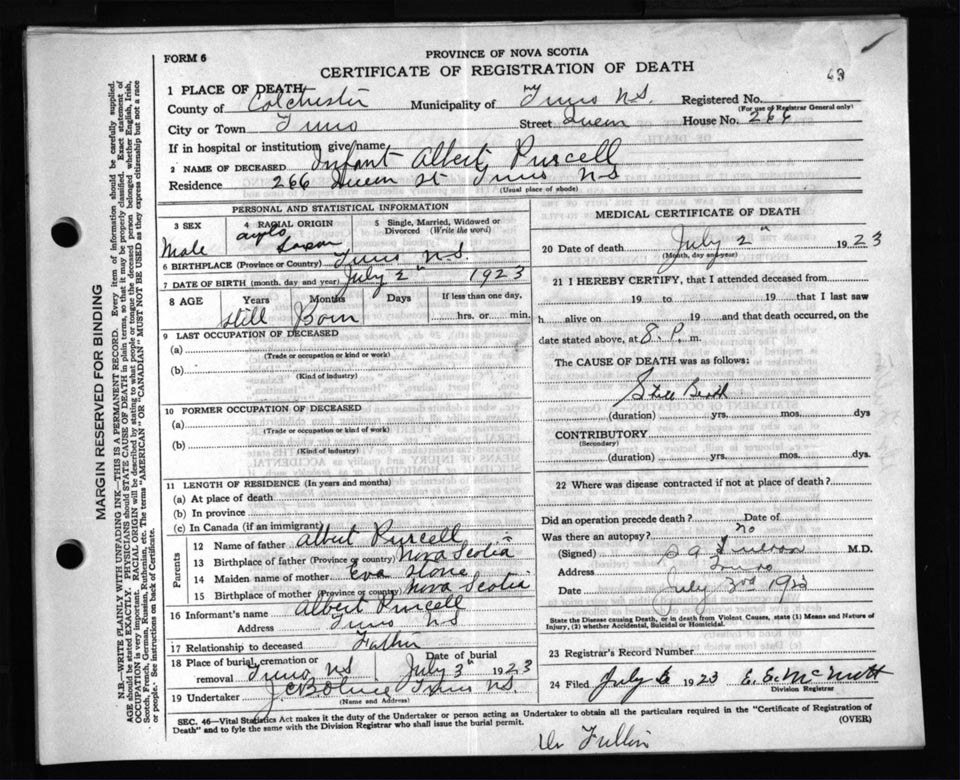 FORM 6
PROVINCE OF NOVA SCOTIA
CERTIFICATE OF REGISTRATION OF DEATH
63
1 PLACE OF DEATH
County of Colchester Municipality of Truro N.S. Registered No.
(For use of Registrar General only)
City or Town Truro Street Queen House No. 266
If in hospital or institution give name
2 NAME OF DECEASED Infant Albert Purcell
Residence 266 Queen St Truro N S
(Usual place of abode)
PERSONAL AND STATISTICAL INFORMATION
3 SEX Male 4 RACIAL ORIGIN Anglo Saxon 5 Single, Married, Widowed or Divorced (Write the word)
6 BIRTHPLACE (Province or Country) Truro N.S.
7 DATE OF BIRTH (month, day and year) July 2" 1923
8 AGE Years Months Days If less than one day,
Still Born hrs. or min.
9 LAST OCCUPATION OF DECEASED
(a)
(Trade or occupation or kind of work)
(b)
(Kind of industry)
10 FORMER OCCUPATION OF DECEASED
(a)
(Trade or occupation or kind of work)
(b)
(Kind of industry)
11 LENGTH OF RESIDENCE (In years and months)
(a) At place of death
(b) In province
(c) In Canada (if an immigrant)
Parents
12 Name of father Albert Purcell
13 Birthplace of father (Province or country) Nova Scotia
14 Maiden name of mother Eva
15 Birthplace of mother (Province or country) Nova Scotia
16 Informant's name Albert Purcell
Address Truro N S
17 Relationship to deceased Father
18 Place of burial, cremation or removal Truro N S Date of burial July 3" 1923
19 Undertaker Truro N.S.
(Name and Address)
MEDICAL CERTIFICATE OF DEATH
20 Date of death July 2" 1923
(Month, day and year)
21 I HEREBY CERTIFY, that I attended deceased from
19 to 19 that I last saw
h alive on 19 and that death occurred, on
date stated above, at 8 P. m.
The CAUSE OF DEATH was as follows:
Still Birth
(duration) yrs. mos. dys
CONTRIBUTORY
(Secondary)
(duration) yrs. mos. dys
22 Where was disease contracted if not at place of death?
Did an operation precede death? Date of
Was there an autopsy? no
(Signed) M.D.
Address Truro
Date July 3rd 192
State the Disease causing Death, or in death from Violent Causes, state (1) Means and Nature of
Injury, (2) whether Accidental, Suicidal or Homicidal.
23 Registrar's Record Number
24 Filed July 6 1923 E. E. McNutt
Division Registrar
SEC. 46—Vital Statistics Act makes it the duty of the Undertaker or person acting as Undertaker to obtain all the particulars required in the "Certificate of Registration of
Death" and to fyle the same with the Division Registrar who shall issue the burial permit. (OVER)
Dr
MARGIN RESERVED FOR BINDING
N.B.—WRITE PLAINLY WITH UNFADING INK—THIS IS A PERMANENT RECORD. Every item of information should be carefully supplied.
AGE should be stated EXACTLY. PHYSICIANS should STATE CAUSE OF DEATH in plain terms, so that it may be properly classified. Exact statement of
OCCUPATION is very important. RACIAL ORIGIN will be described by stating to what people or tongue the deceased person belonged whether English, Irish,
Scotch, French, German, Russian, Ruthenian, etc. The terms "AMERICAN" OR "CANADIAN" MUST NOT BE USED as they express citizenship but not a race
or people. See instructions on back of Certificate.